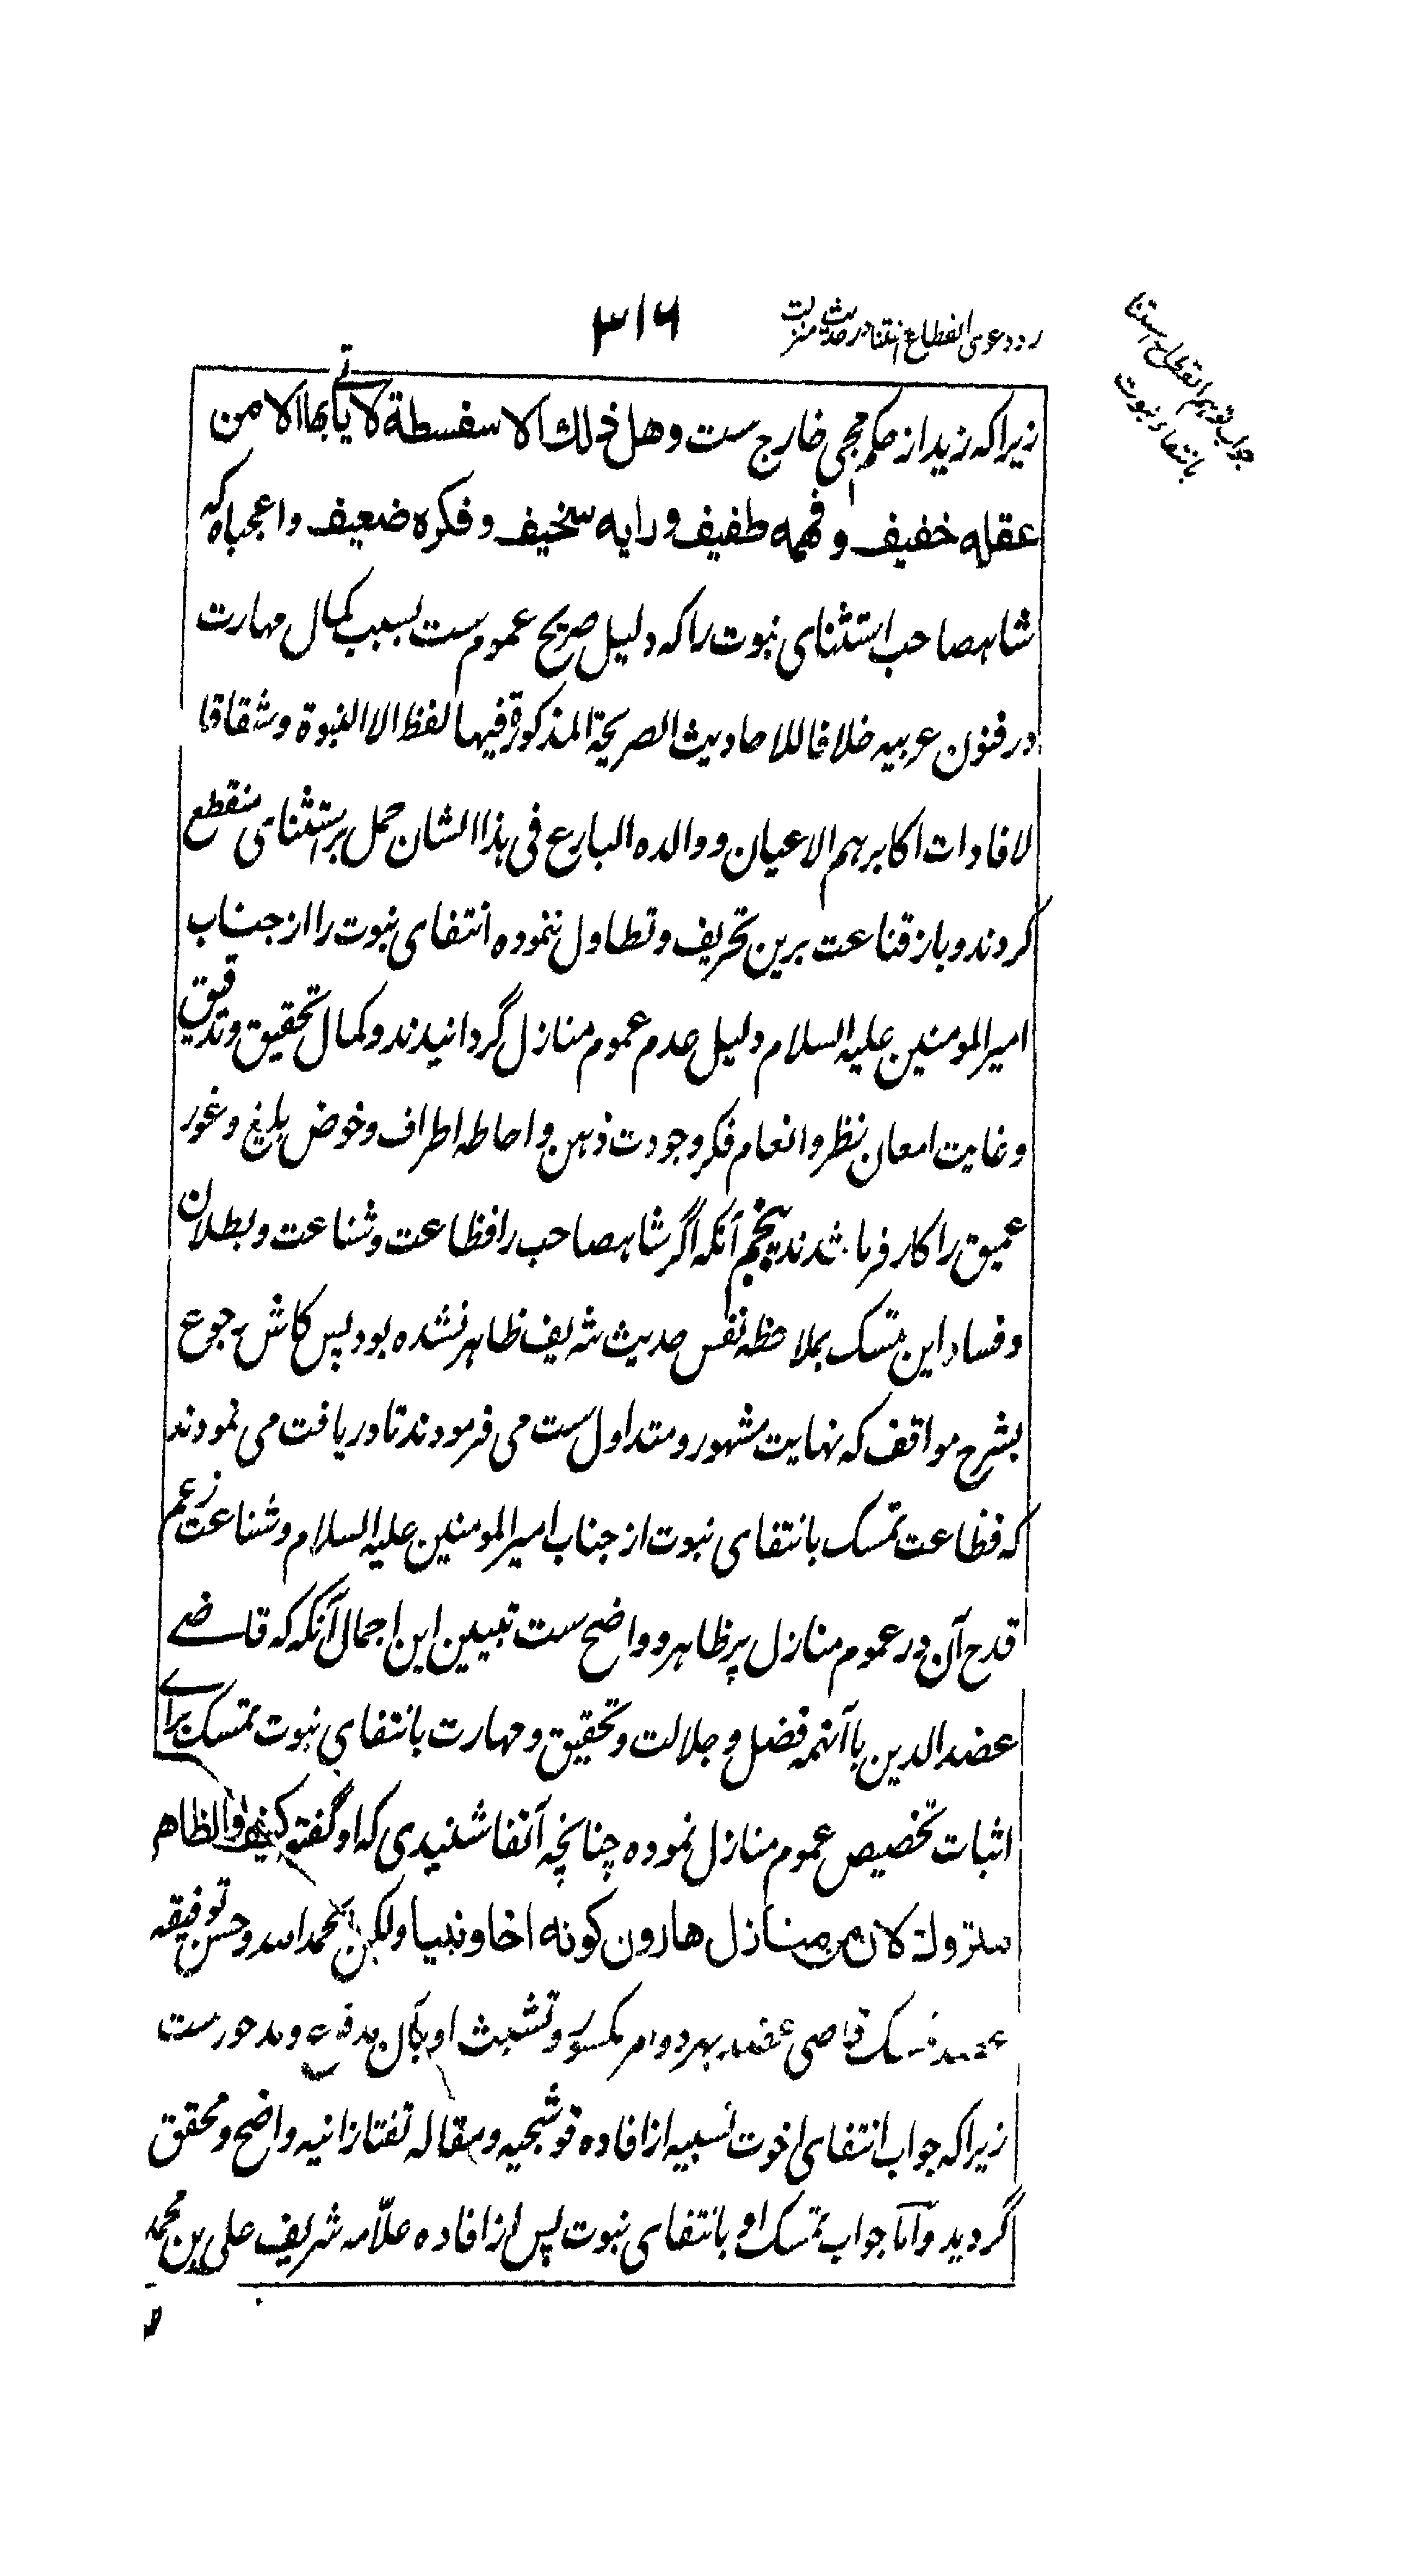 رد دعوی انقطاع استثنا در حدیث منزلت
۳۱۶
جواب توهم انقطاع استثنا
بانتفاء نبوت
زیرا که زید از حکم مجی خارج ست وهل ذلك الا سفسطة لا یاتی بها الا من
عقله خفیف و فهمه طفیف و رایه سخیف و فکره ضعیف واعجباه که
شاهصاحب استثنای نبوت را که دلیل صریح عموم ست بسبب کمال مهارت
در فنون عربیه خلافا للاحادیث الصریحة المذکورة فیها لفظ الا النبوة وشقاقا
لافادات اکابرهم الاعیان ووالده البارع فی هذا الشان حمل بر استثنای منقطع
کردند و باز قناعت برین تحریف و تطاول ننموده انتفای نبوت را از جناب
امیرالمومنین علیه السلام دلیل عدم عموم منازل گردانیدند و کمال تحقیق و تدقیق
و غایت امعان نظر و انعام فکر و جودت ذهن و احاطه اطراف و خوض بلیغ و غور
عمیق را کار فرما شدند پنجم آنکه اگر شاهصاحب را فظاعت و شناعت و بطلان
و فساد این تمسک بملاحظه نفس حدیث شریف ظاهر نشده بود پس کاش رجوع
بشرح مواقف که نهایت مشهور و متداول ست می فرمودند تا دریافت می نمودند
که فظاعت تمسک بانتفای نبوت از جناب امیرالمومنین علیه السلام و شناعت زعم
قدح آن در عموم منازل پر ظاهر و واضح ست تبیین این اجمال آنکه که قاضی
عضدالدین با آنهمه فضل و جلالت و تحقیق و مهارت بانتفای نبوت تمسک برای
اثبات تخصیص عموم منازل نموده چنانچه آنفا شنیدی که او گفته کیف والظاهر
متروك لان من منازل هارون کونه اخا ونبیا ولکن بحمدالله وحسن توفیقه
تمسک قاضی عضد بهر دو امر مکسور و تشبث او بآن مدفوع و مدحور ست
زیرا که جواب انتفای اخوت نسبیه از افاده قوشجیه و مقاله تفتازانیه واضح و محقق
گردید و اما جواب تمسک او بانتفای نبوت پس از افاده علّامه شریف علی بن محمد